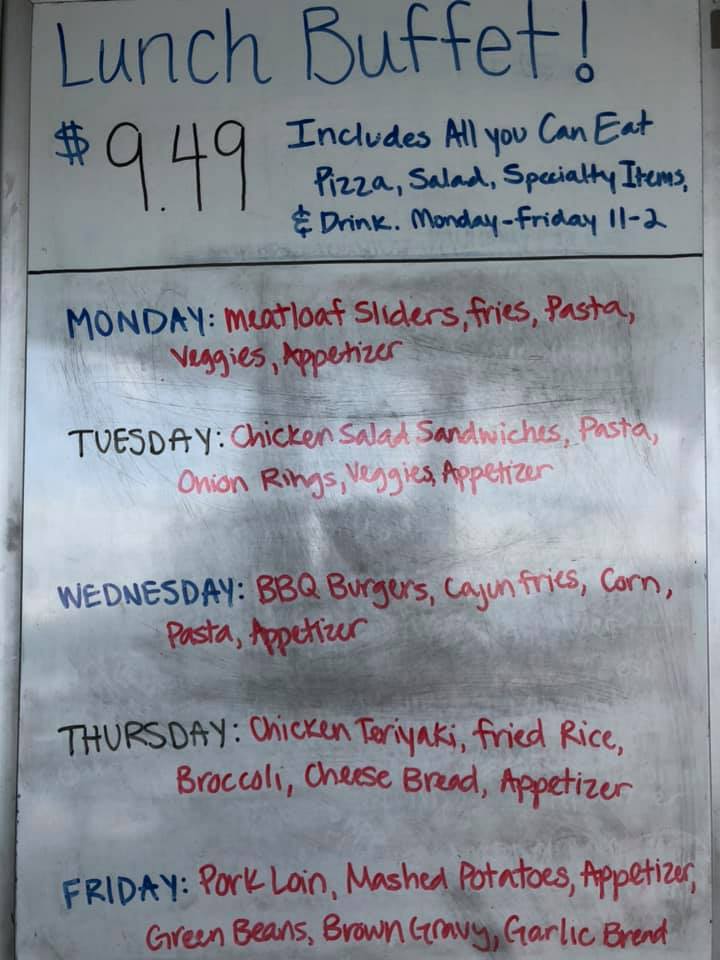 Lunch Buffet!
$9.49 Includes All you Can Eat
Pizza, Salad, Specialty Items,
& Drink. Monday-Friday 11-2
MONDAY: Meatloaf Sliders, fries, Pasta,
Veggies, Appetizer
TUESDAY: Chicken Salad Sandwiches, Pasta,
Onion Rings, Veggies, Appetizer
WEDNESDAY: BBQ Burgers, Cajun fries, Corn,
Pasta, Appetizer
THURSDAY: Chicken Teriyaki, fried Rice,
Broccoli, Cheese Bread, Appetizer
FRIDAY: Pork Loin, Mashed Potatoes, Appetizer,
Green Beans, Brown Gravy, Garlic Bread